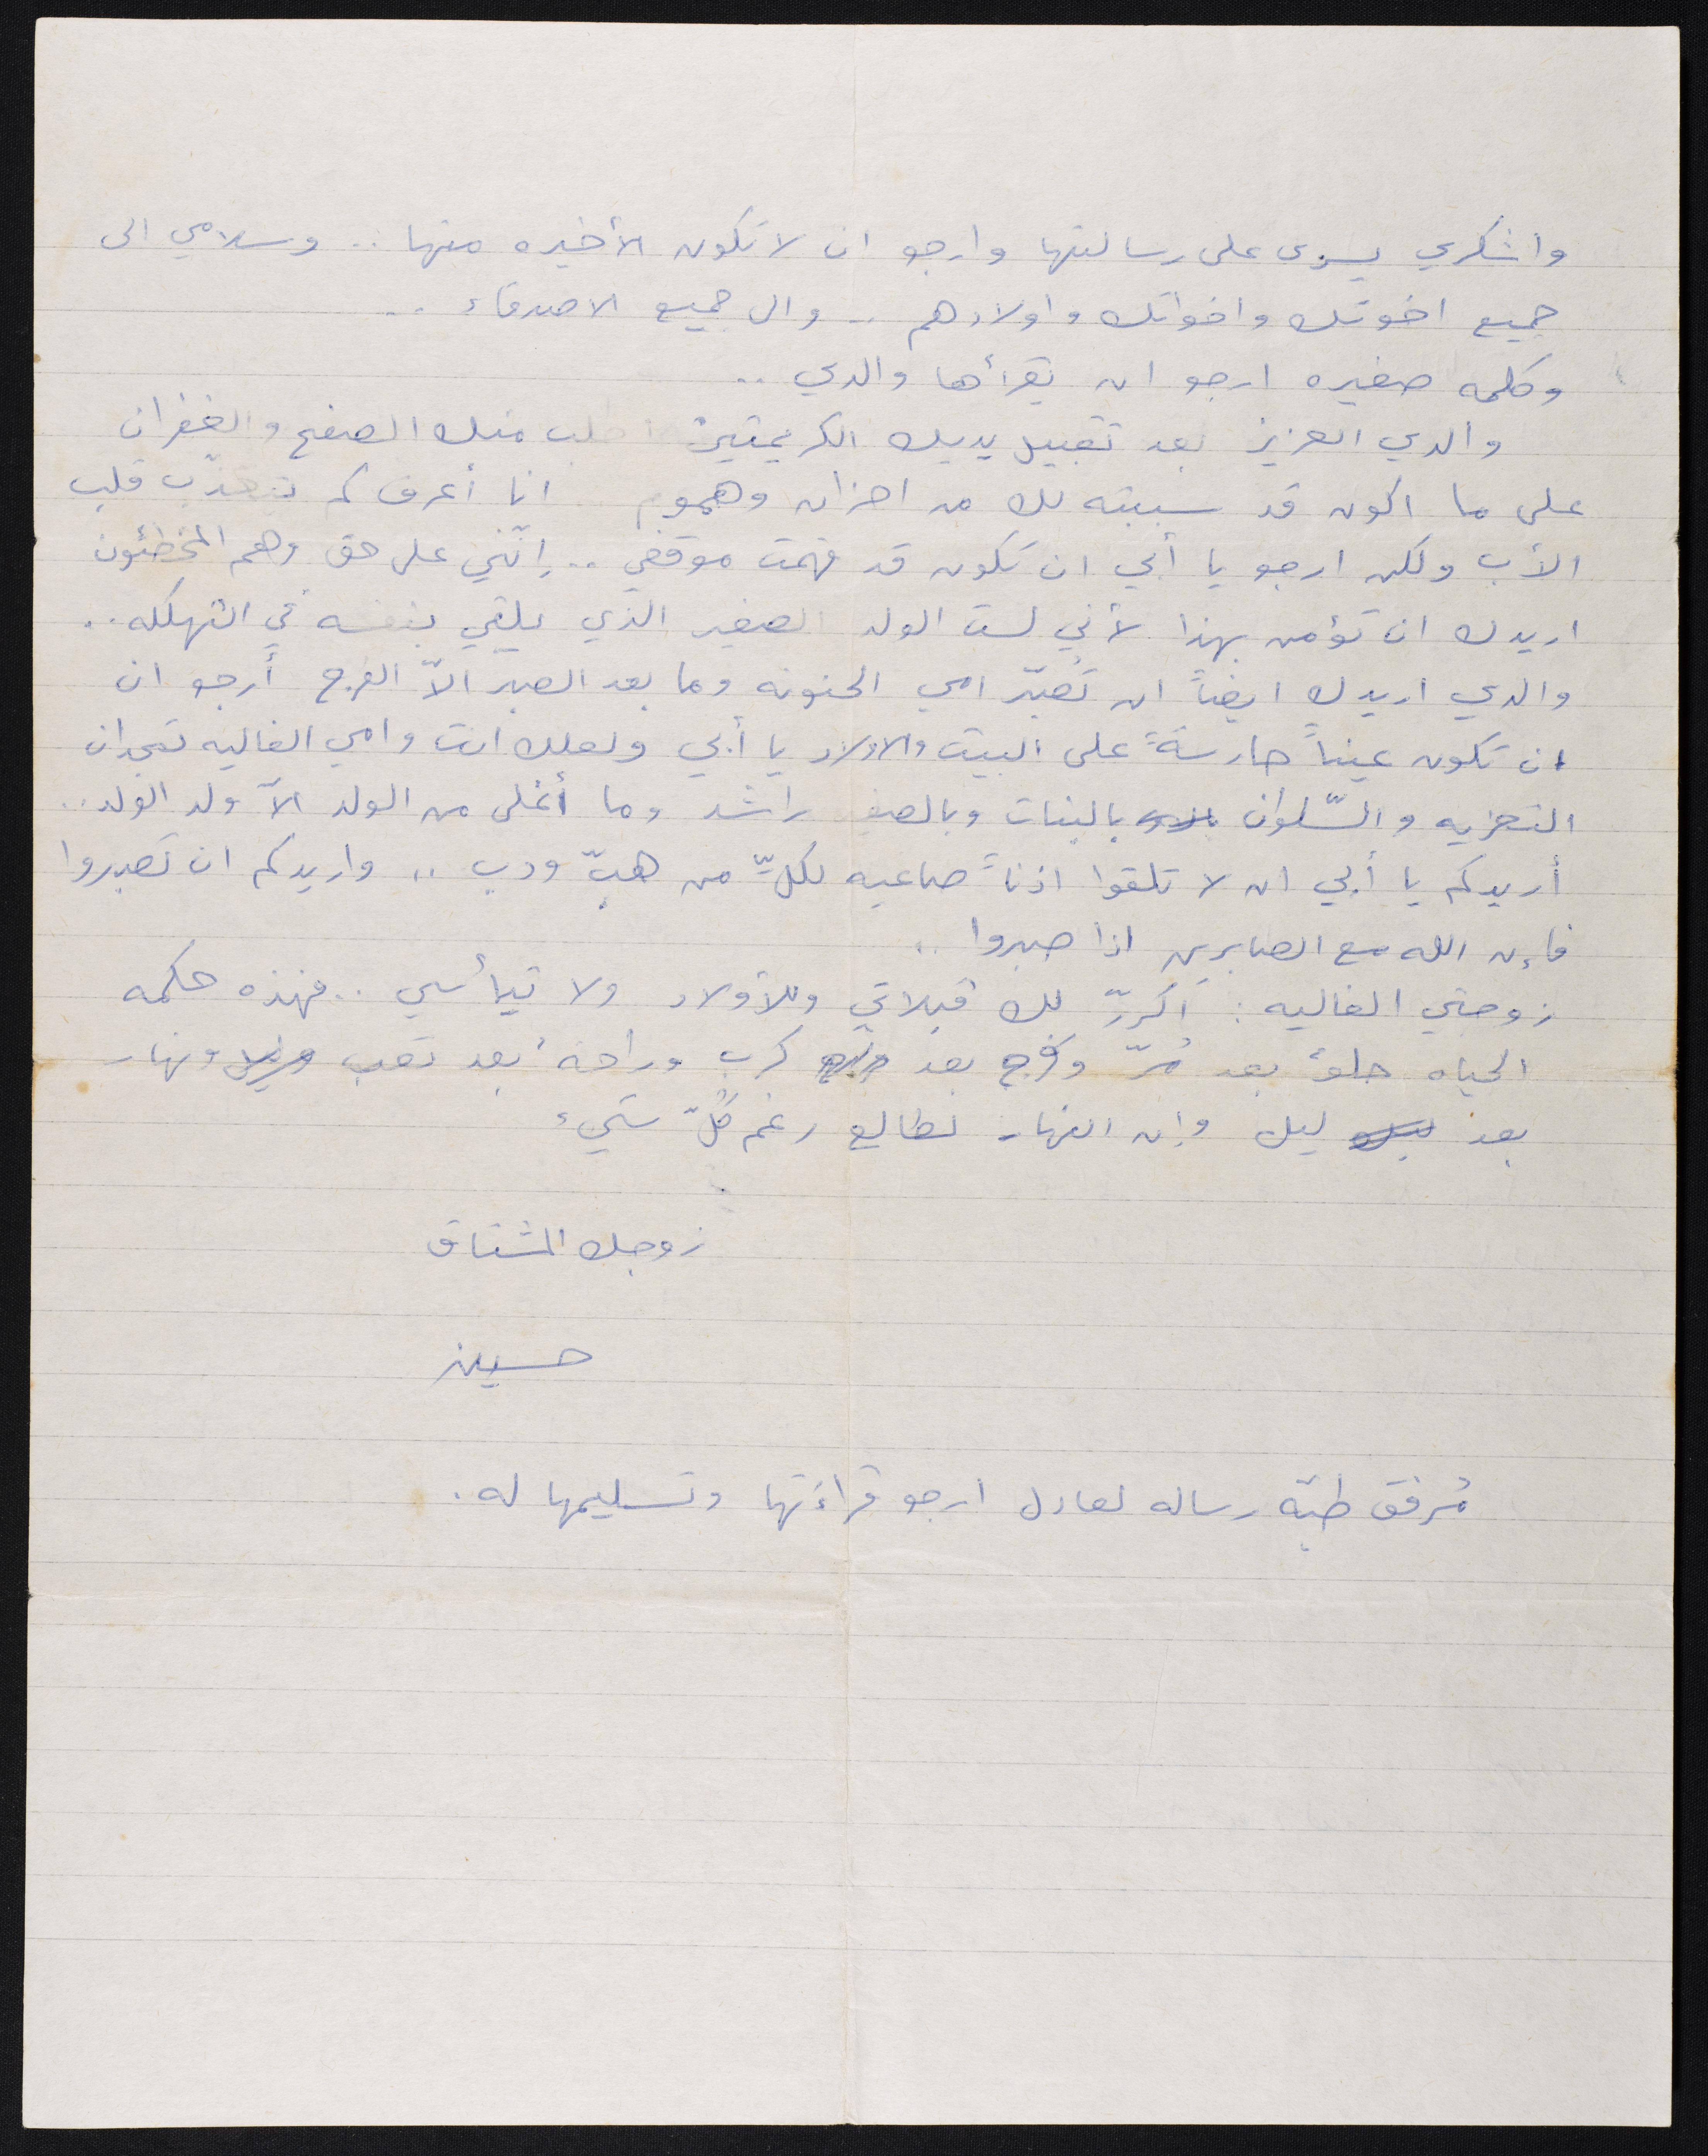 واشكري يسرى على رسالتها وارجو ان لا تكون الأخيره منها .. وسلامي الى
جميع اخوتك واخواتك واولادهم .. والى جميع الاصدقاء ..
وكلمه صغيره ارجو ان يقرأها والدي ..
والدي العزيز بعد تقبيل يديك الكريمتين اطلب منك الصفح والغفران
على ما اكون قد سببته لك من احزان وهموم .. انا أعرف كم يتعذّب قلب
الأب ولكن ارجو يا أبي ان تكون قد فهمت موقفي .. إنّني على حق وهم المخطئون
اريدك ان تؤمن بهذا لأني لست الولد الصغير الذي يلقي بنفسه في التهلكه ..
والدي اريدك ايضاً ان تُصبّر امي الحنونه وما بعد الصبر الاّ الفرج أرجو ان
ان تكون عيناً حارسةً على البيت والاولاد يا أبي ولعلك انت وامي الغاليه تجدان
التعزيه والسّلوان بالبنات وبالصغير راشد وما أغلى من الولد الاّ ولد الولد ..
أريدكم يا أبي ان لا تلقوا اذناً صاغيه لكلّ من هبّ ودب .. واريدكم ان تصبروا
فإن الله مع الصابرين اذا صبروا ..
زوجتي الغاليه : أكرّر لك قبلاتي وللأولاد ولا تيأسي .. فهذه حكمه
الحياه حلوٌ بعد مُرّ وفرج بعد كرب وراحةٌ بعد تعب ونهار
بعد ليل وإن النهار لطالع رغم كُلّ شيء
زوجك المشتاق
حسين
مُرفق طيّه رساله لعادل ارجو قراءتها وتسليمها له .